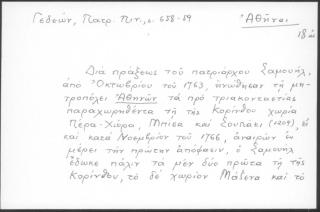 Γεδεών, Πατρ. Πιν., σ. 658-59
Ἀθῆναι
18
Διὰ πράξεως τοῦ πατριάρχου Σαμουήλ,
ἀπὸ Ὀκτωβρίου τοῦ 1763, ἡνώθησαν τῇ μη-
τροπόλει Ἀθηνῶν τὰ πρὸ τριακονταετίας
παραχωρηθέντα τῇ τῆς Κορίνθου χωρία
Πέρα-Χώρα, Μπίσα καὶ (1204),
καὶ κατὰ Νοέμβριον τοῦ 1766, ἀναιρῶν ἐν
μέρει τὴν πρώτην ἀπόφασιν, ὁ Σαμουὴλ
ἔδωκε πάλιν τὰ μὲν δύο πρῶτα τῇ τῆς
Κορίνθου, τὸ δὲ χωρίον καὶ τὸ